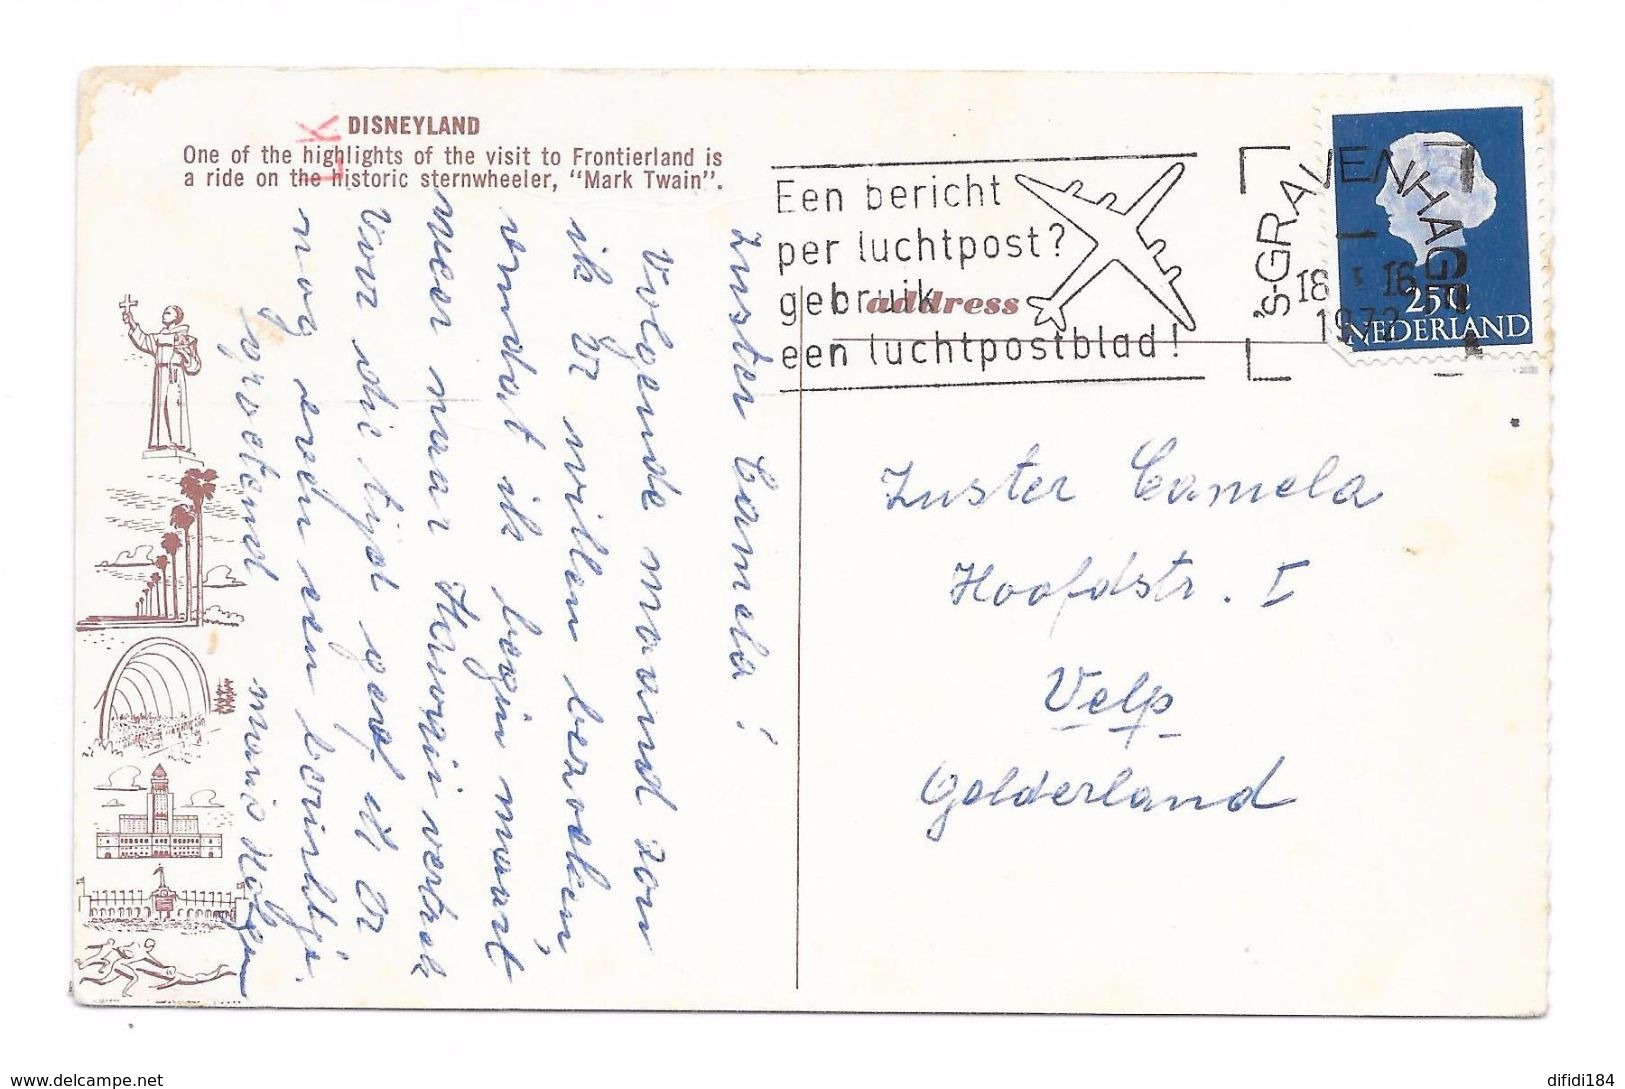 DISNEYLAND
One of the highlights of the visit to Frontierland is
a ride on the historic sternwheeler, "Mark Twain".
LK
Zuster Camela!
Volgende maand zou
ik U willen bezoeken,
omdat ik begin maart
weer naar Hawaii vertrek
Voor die tijd geef ik U
nog even een berichtje.
groetend
Een bericht
per luchtpost?
gebruik
een luchtpostblad!
address
's-GRAVENHAGE
18 16
1972
25 C
NEDERLAND
Zuster Camela
Hoofdstr. I
Velp
Gelderland
www.delcampe.net
difidi184